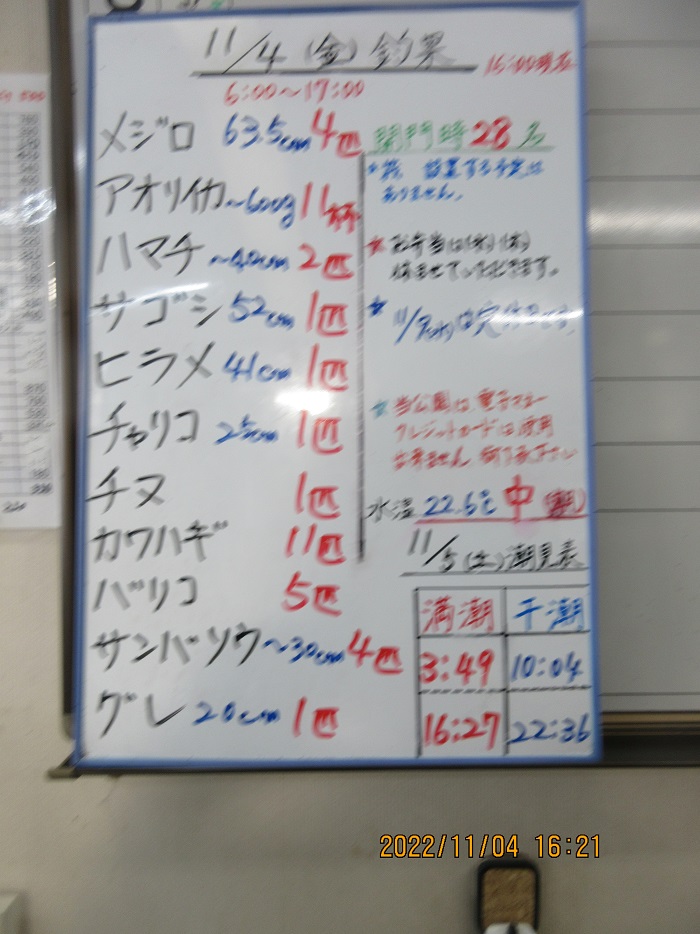 11/4(金)釣果
16:00現在
6:00~17:00
メジロ 63.5cm 4匹
アオリイカ ~600g 11杯
ハマチ ~40cm 2匹
サゴシ 52cm 1匹
ヒラメ 41cm 1匹
チャリコ 25cm 1匹
チヌ 1匹
カワハギ 11匹
バリコ 5匹
サンバソウ ~30cm 4匹
グレ 20cm 1匹
開門時 28名
ありません。
★お弁当は(水)(木)
休ませていただきます。
★
は定休日です。
★当公園は電子マネー
クレジットカードは使用
出来ません
水温 22.6℃ 中(潮)
11/5(土)潮見表
満潮 干潮
3:49 10:04
16:27 22:36
2022/11/04 16:21